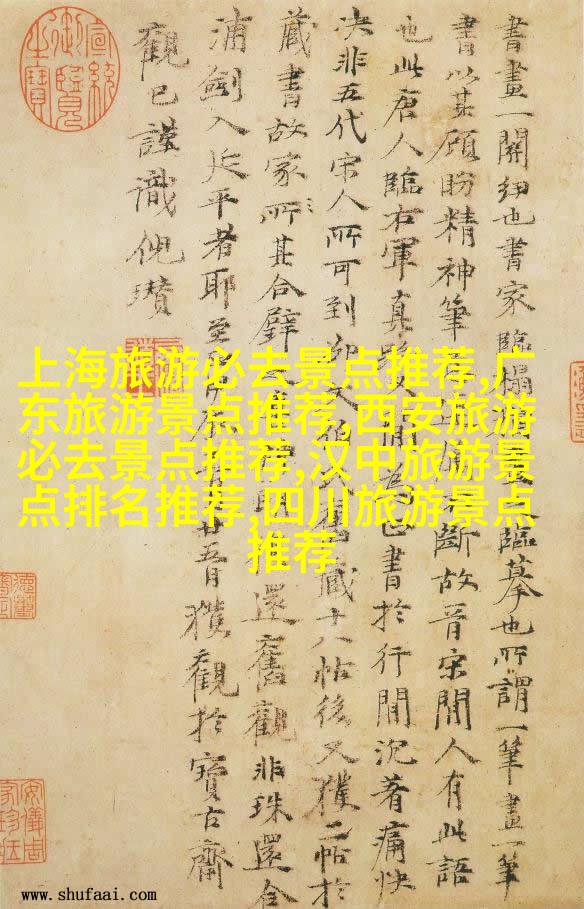 書畫一關紐也書家臨榻臨摹也所謂一筆畫一筆
書以其顧盼精神筆斷故晉宋間人有此語
也此唐人臨右軍真書於行間沉著痛快
決非五代宋人所可到藏十八帖後又獲二帖於
藏書故家所其合璧還舊觀非珠還合
浦劍入延平者耶至廿五日獲觀於寶古齋
觀已謹識倪瓚
宣統御覽之寶
安儀周家珍藏
上海旅游必去景点推荐,广
东旅游景点推荐,西安旅游
必去景点推荐,汉中旅游景
点排名推荐,四川旅游景点
推荐
www.shufaai.com